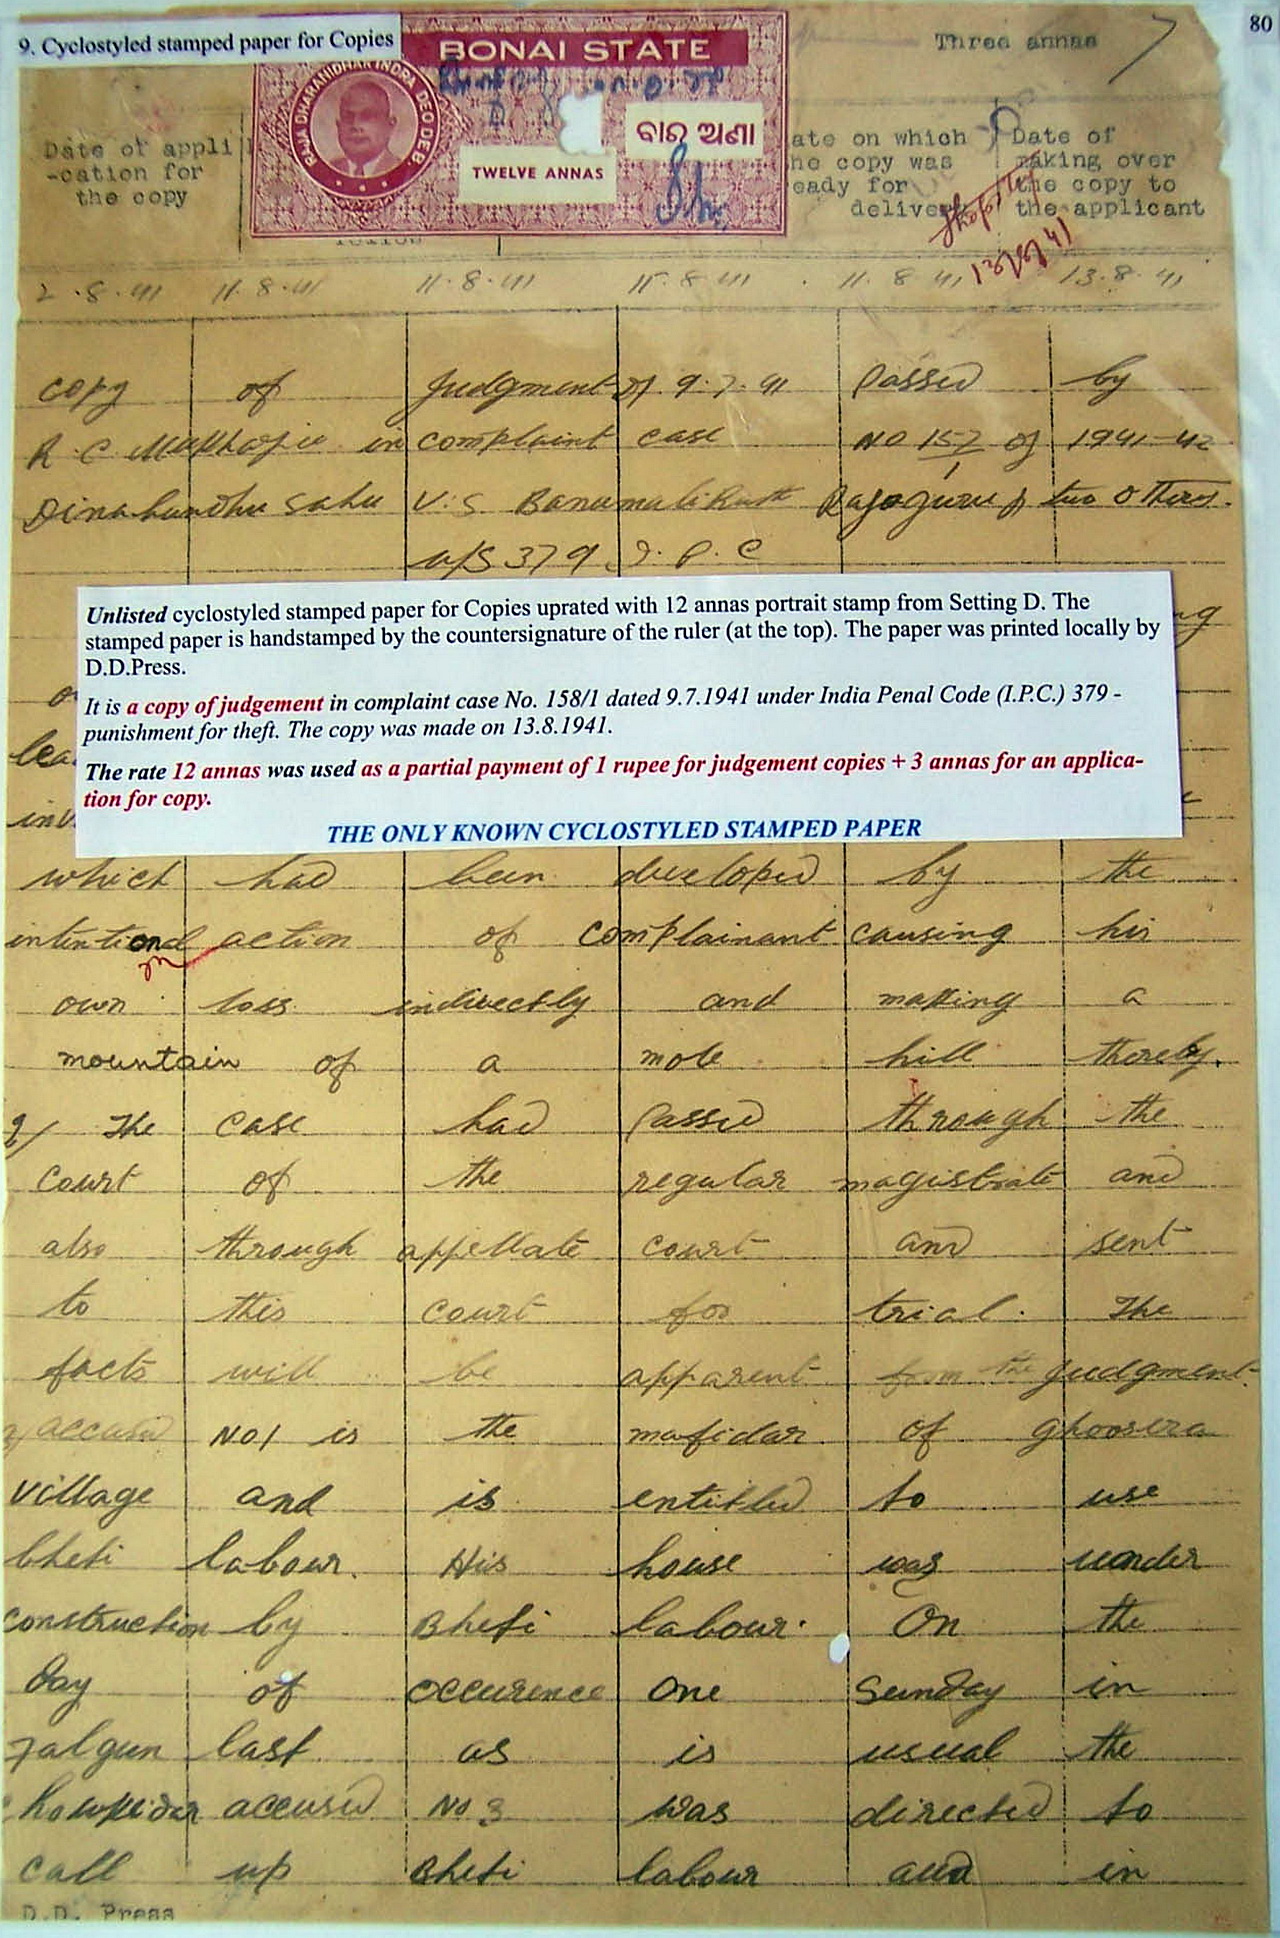 9. Cyclostyled stamped paper for Copies
80
BONAI STATE
RAJA DHARANIDHAR INDRA DEO DEB
ବାର ଅଣା
TWELVE ANNAS
Three annas
Date of appli
-cation for
the copy
ate on which
he copy was
eady for
delive
Date of
making over
the copy to
the applicant
13/8/41
2.8.41 11.8.41 11.8.41 11.8.41 11.8.41 13.8.41
Copy of Judgment of 9.7.41 passed by
R C Mukharjee in complaint case No 157/1 of 1941-42
Dinabandhu Sahu V.S. Banamali Rajaguru & two others.
u/s 379 I.P.C
Unlisted cyclostyled stamped paper for Copies uprated with 12 annas portrait stamp from Setting D. The
stamped paper is handstamped by the countersignature of the ruler (at the top). The paper was printed locally by
D.D.Press.
It is a copy of judgement in complaint case No. 158/1 dated 9.7.1941 under India Penal Code (I.P.C.) 379 -
punishment for theft. The copy was made on 13.8.1941.
The rate 12 annas was used as a partial payment of 1 rupee for judgement copies + 3 annas for an applica-
tion for copy.
THE ONLY KNOWN CYCLOSTYLED STAMPED PAPER
which had been developed by the
action of complainant causing his
own loss indirectly and making a
mountain of a mole hill thereby.
2/ The case had passed through the
court of the regular magistrate and
also through appellate court and sent
to this court for trial. The
facts will be apparent from the judgment
accused No 1 is the mafidar of ghoosra
village and is entitled to use
bheti labour. His house was under
construction by Bheti labour. On the
day of occurence one Sunday in
Falgun last as is usual the
accused No 3 was directed to
call up Bheti labour and in
D.D. Press